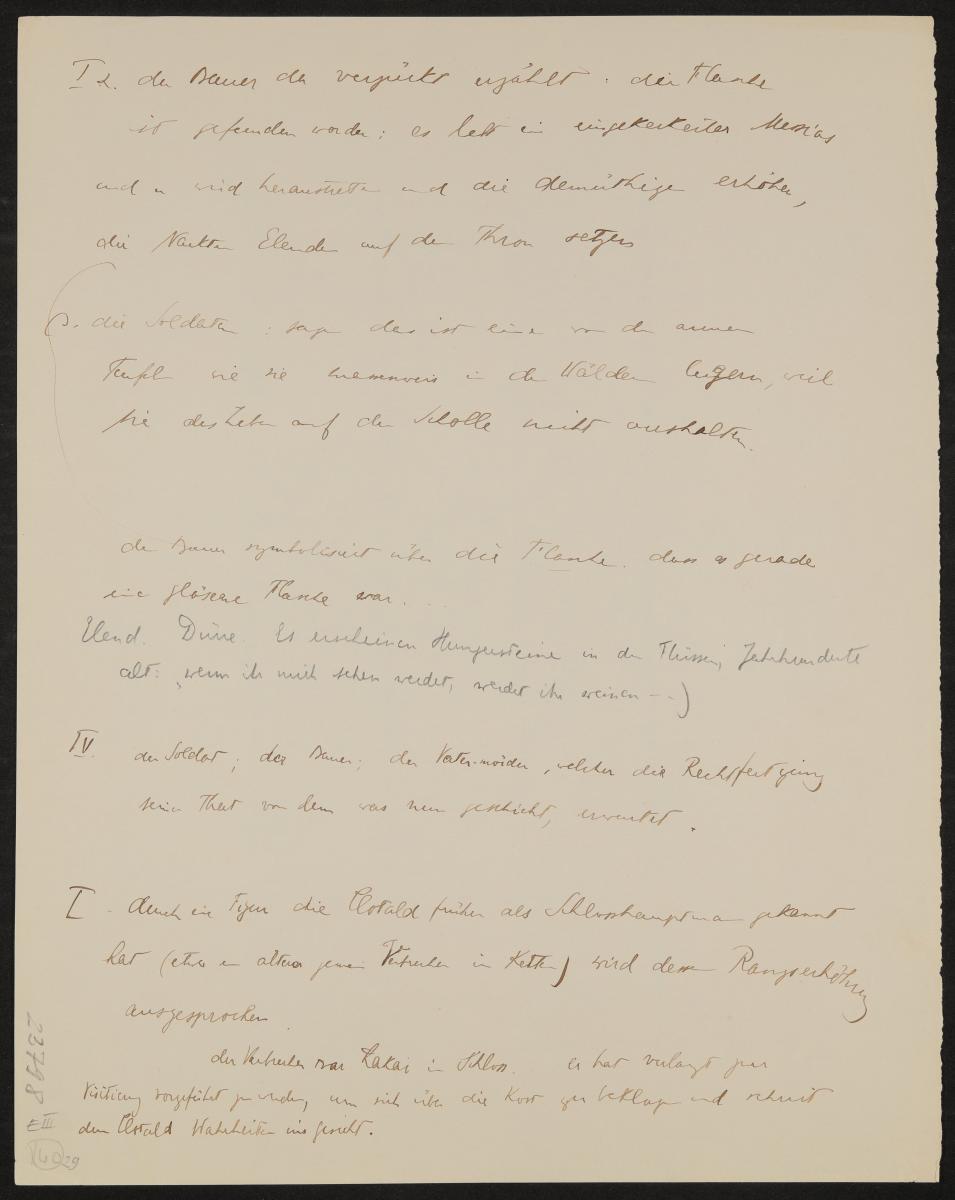 I α. der Bauer der verzückt erzählt: die Flasche
ist gefunden worden: es lebt ein eingekerkerter Messias
und er wird heraustreten und die demüthigen erhöhen,
die Nackten Elenden auf den Thron setzen
β. die Soldaten: sagen das ist einer von den armen
Teufeln wie sie massenweis in den Wäldern lugern, weil
sie das Leben auf der Scholle nicht aushalten.
der Bauer symbolisiert über die Flasche. dass es gerade
eine gläserne Flasche war...
Elend. Dürre. Es erscheinen Hungersteine in den Flüssen, Jahrhunderte
alt: „wenn ihr mich sehen werdet, werdet ihr weinen --)
IV. der Soldat; der Bauer; der Vater-mörder, welcher die Rechtfertigung
seiner That von dem was nun geschieht, erwartet.
I - durch eine Figur die Clotald früher als Schlosshauptmann gekannt
hat (etwa ein alter Verbrecher in Ketten) wird dessen Rangserhöhung
ausgesprochen
der Verbrecher war Lakai im Schloss. er hat verlangt zur
Visitierung vorgeführt zu werden, um sich über die Kost zu beklagen und schreit
dem Clotald Wahrheiten ins Gesicht.
23798
E III
40
29